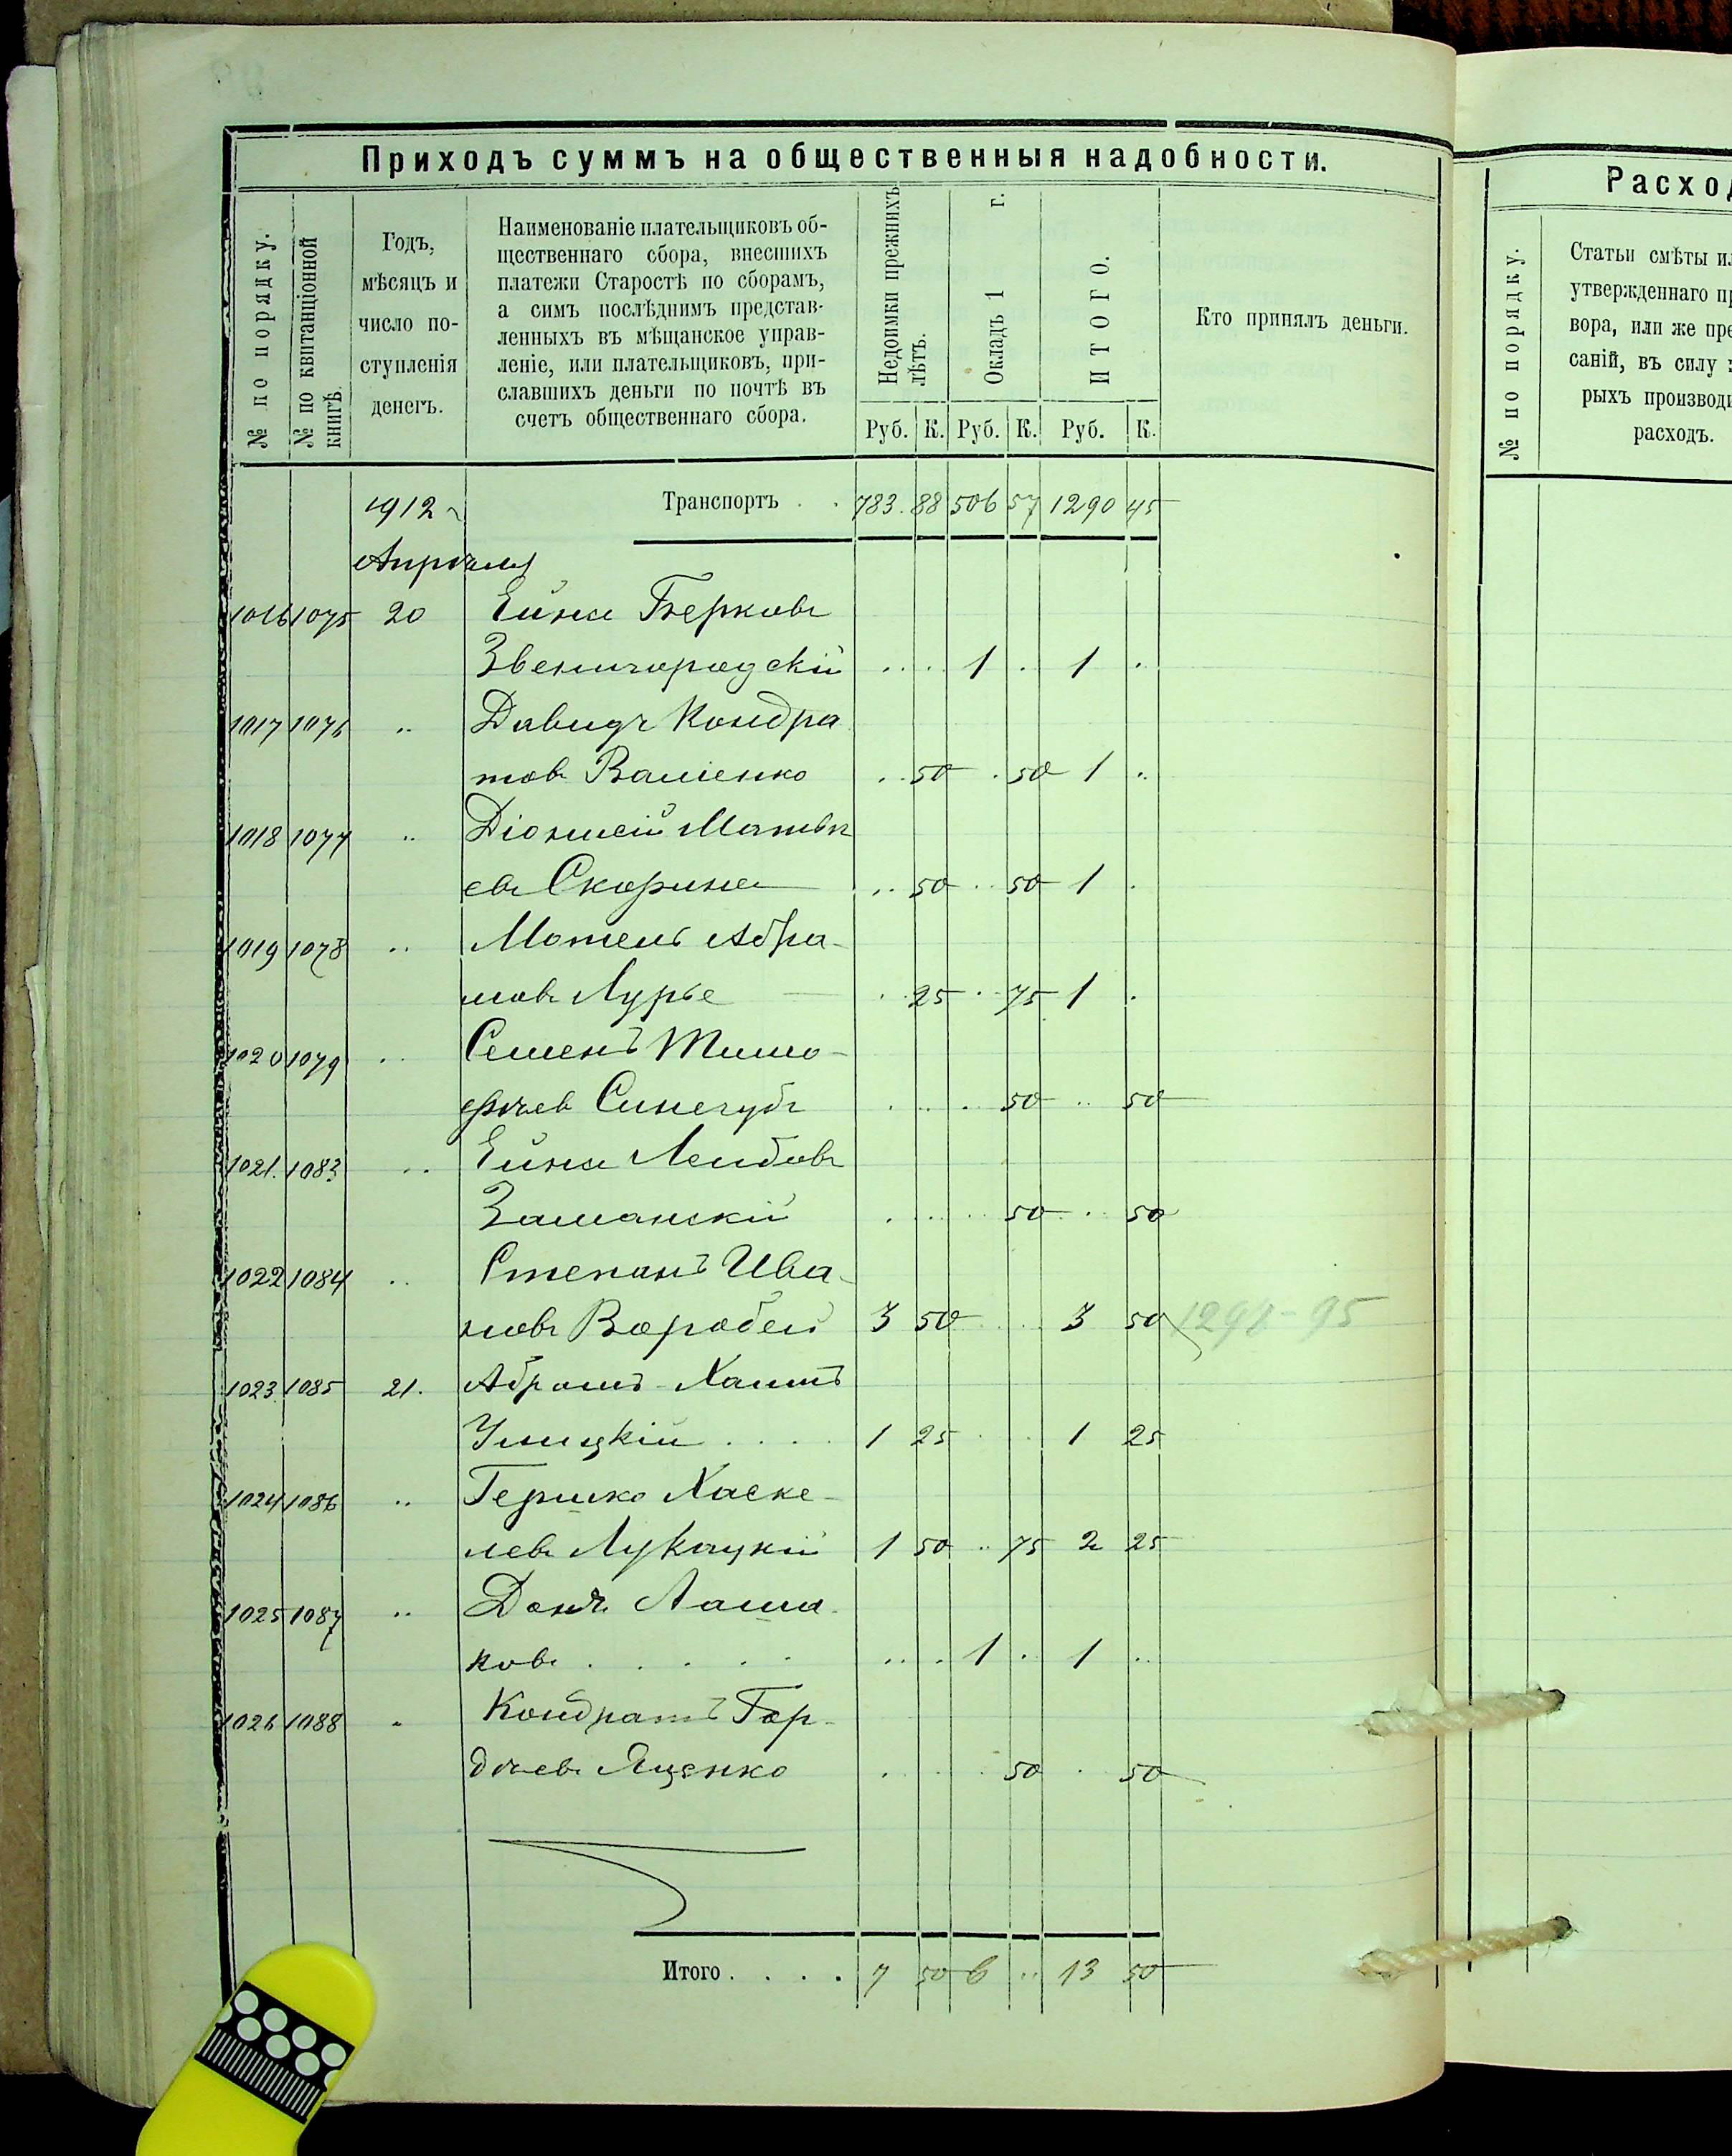 Приходъ суммъ на общественныя надобности.
№ по порядку.
№ по квитанціонной
книгѣ.
Годъ,
мѣсяцъ и
число по-
ступленія
денегъ.
Наименованіе плательщиковъ об-
щественнаго сбора, внесшихъ
платежи Старостѣ по сборамъ,
а симъ послѣднимъ представ-
ленныхъ въ мѣщанское управ-
леніе, или плательщиковъ, при-
славшихъ деньги по почтѣ въ
счетъ общественнаго сбора.
Недоимки прежнихъ
лѣтъ.
Окладъ 1 г.
ИТОГО.
Кто принялъ деньги.
Руб. К. Руб. К. Руб. К.
1912 Транспортъ . . 783. 88 506 57 1290 45
Апрѣля
1016 1075 20 Ейна Берковъ
Звенигородскій .... 1 . 1 .
1017 1076 .. Давидъ Кондра
товъ Ващенко .. 50 . 50 1 ..
1018 1077 .. Діонисій Матвѣ
евъ Скорина .. 50 .. 50 1 .
1019 1078 .. Мотель Абра-
мовъ Лурье . . 25 . 75 1 .
1020 1079 .. Семенъ Тимо-
фѣевъ Синегубъ . .. . 50 .. 50
1021. 1083 .. Ейна Лейбовъ
Заманскій . .... 50 .. 50
1022 1084 .. Степанъ Ива-
новъ Воробей 3 50 .. 3 50 1298-95
1023 1085 21. Абрамъ Хаимъ
Улицкій . . . . 1 25 . . 1 25
1024 1086 .. Гершко Хаске-
левъ Лукацкій 1 50 .. 75 2 25
1025 1087 .. Донъ Лаша-
ковъ . . . . . .. . 1 . 1 ..
1026 1088 .. Кондратъ Гор-
дѣевъ Яценко . . . 50 . 50
Итого . . . . 7 50 6 .. 13 50
Расход
№ по порядку.
Статьи смѣты ил
утвержденнаго пр
вора, или же пре
саній, въ силу
рыхъ производи
расходъ.